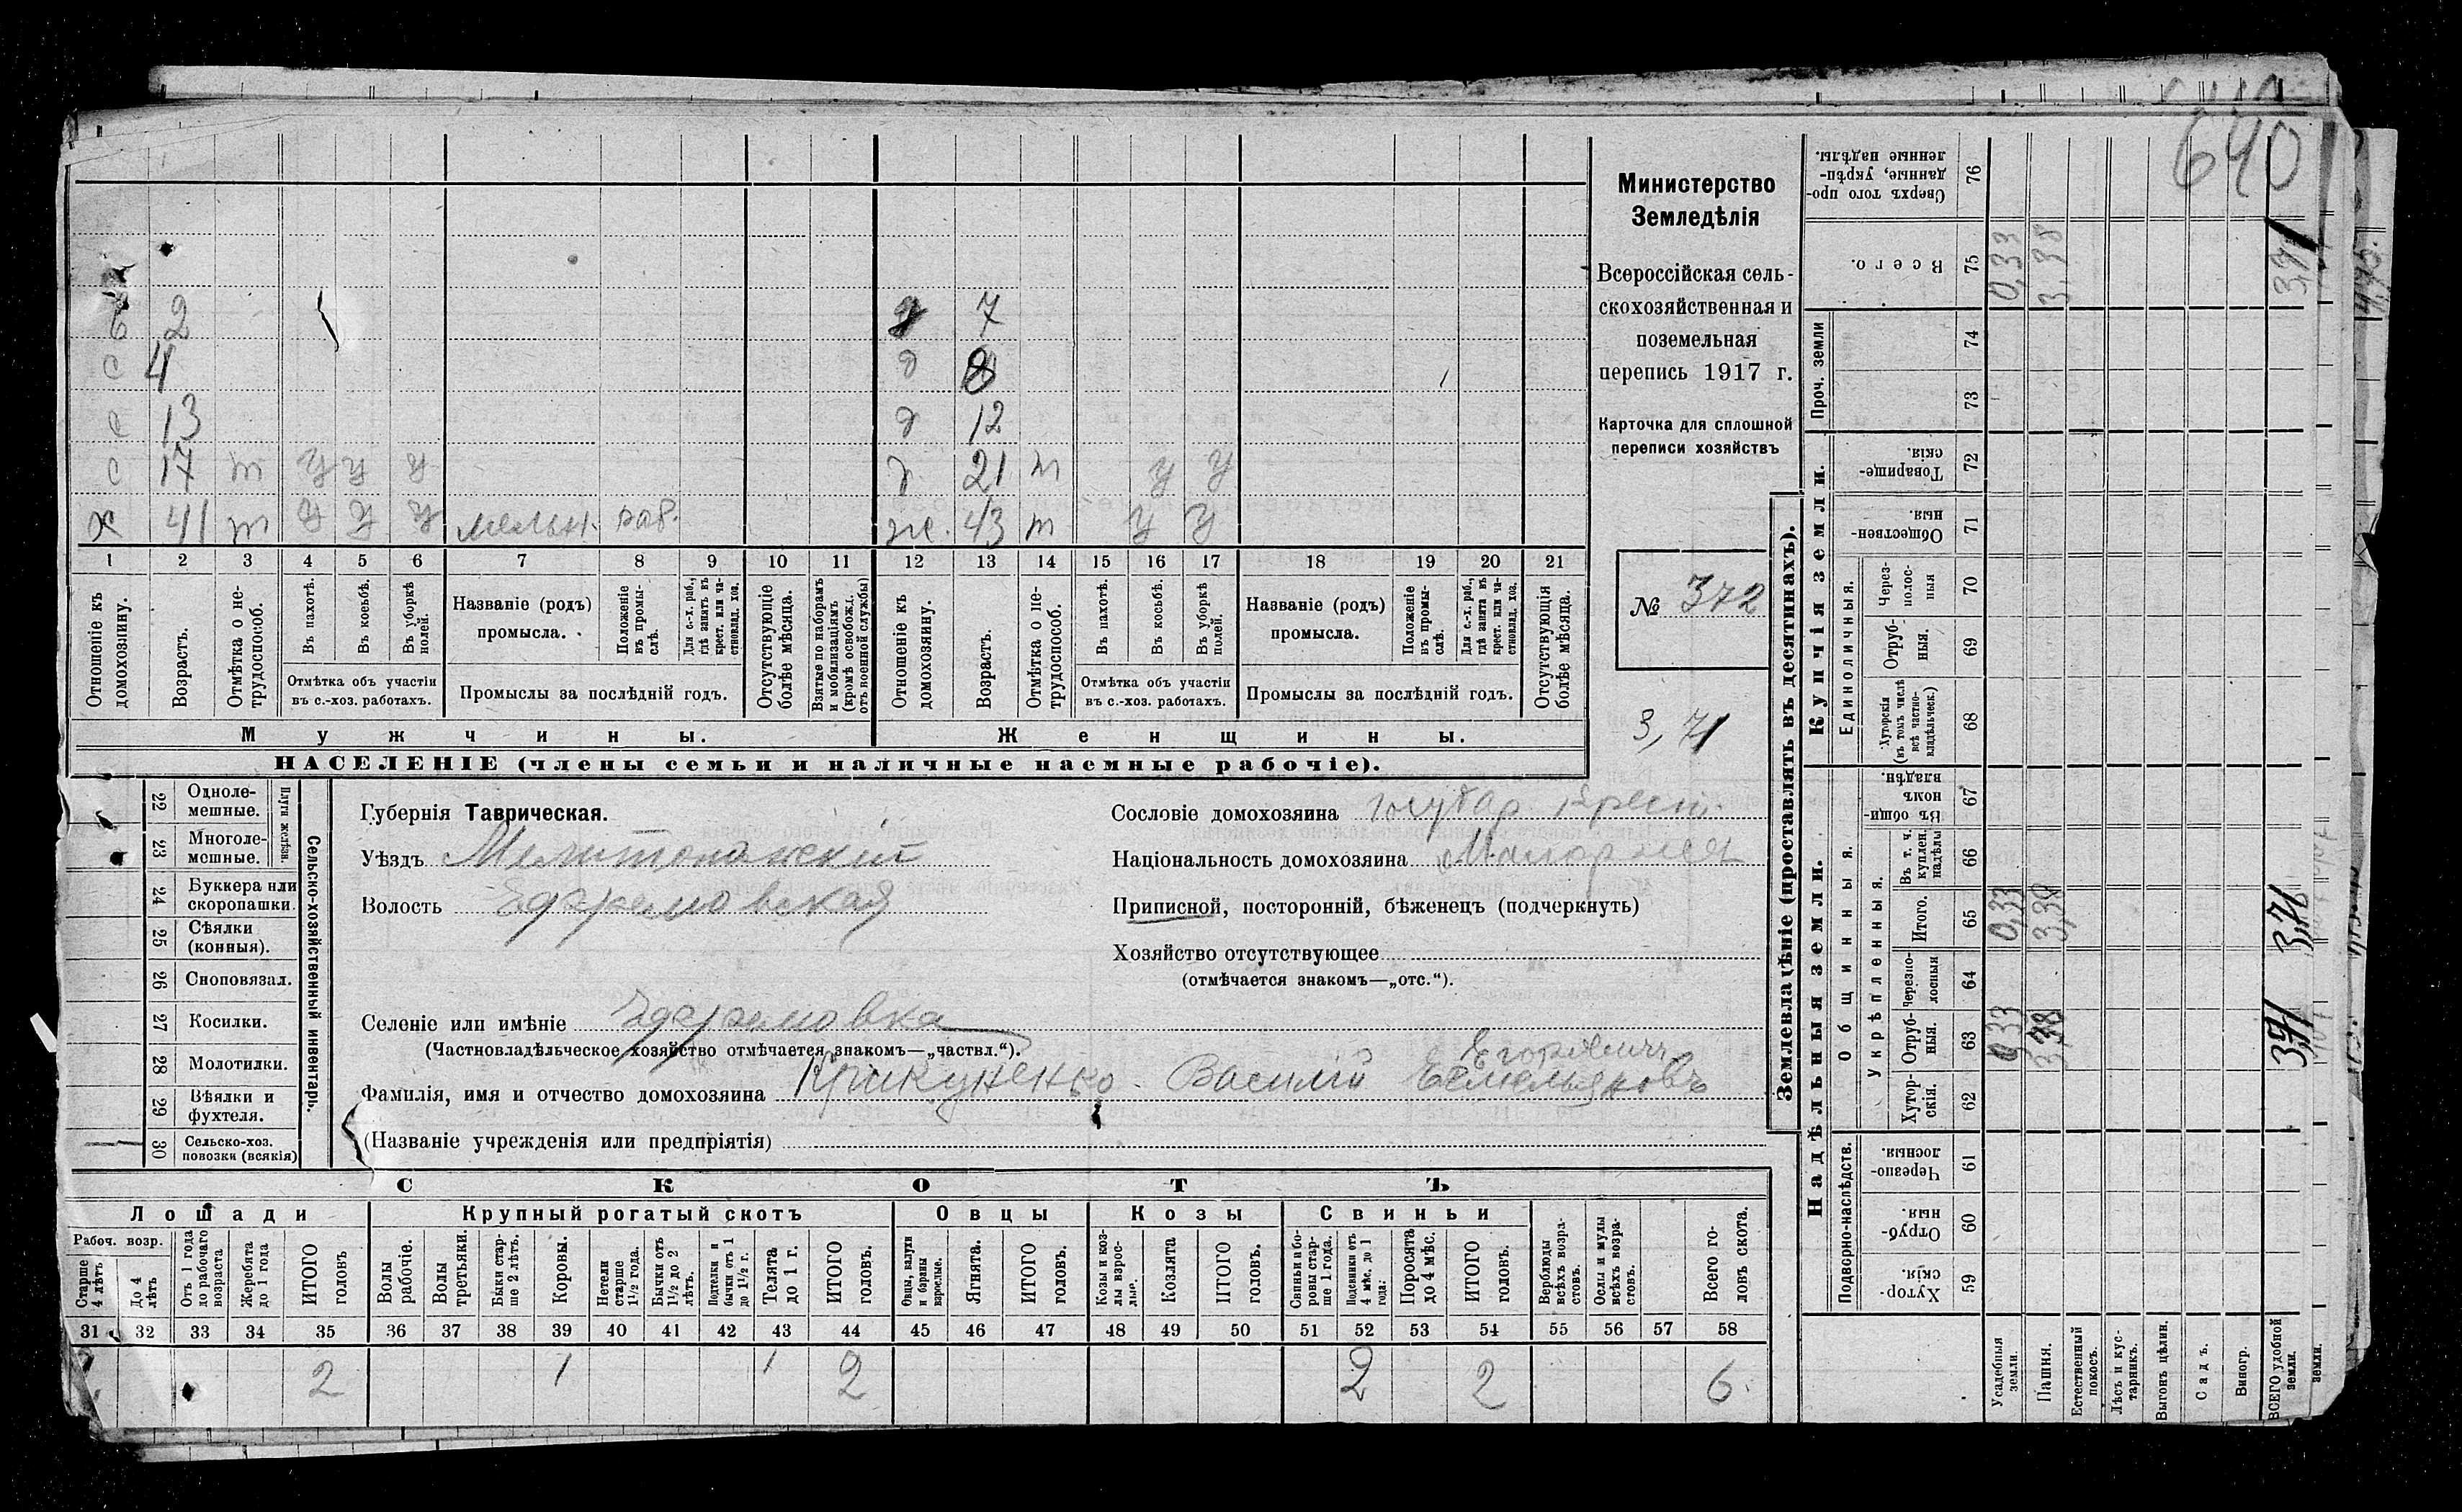 640
б 2 д 7
с 4 д 8
с 13 д 12
с 17 т у у у д. 21 т у у
х 41 т у у у мельн. раб. ж. 43 т у у
1 2 3 4 5 6 7 8 9 10 11 12 13 14 15 16 17 18 19 20 21
Отношеніе къ домохозяину.
Возрастъ.
Отмѣтка о не-трудоспособ.
Въ пахотѣ.
Въ косьбѣ.
Въ уборкѣ полей.
Отмѣтка объ участіи
въ с.-хоз. работахъ.
Названіе (родъ)
промысла.
Положеніе въ промы-слѣ.
Для с.-х. раб., гдѣ занятъ въ крест. или ча-стновлад. хоз.
Промыслы за послѣдній годъ.
Отсутствующіе болѣе мѣсяца.
Взятые по наборамъ и мобилизаціямъ (кромѣ освобожд. отъ военной службы)
Отношеніе къ домохозяину.
Возрастъ.
Отмѣтка о не-трудоспособ.
Въ пахотѣ.
Въ косьбѣ.
Въ уборкѣ полей.
Отмѣтка объ участіи
въ с.-хоз. работахъ.
Названіе (родъ)
промысла.
Положеніе въ промы-слѣ.
Для с.-х. раб., гдѣ занята въ крест. или ча-стновлад. хоз.
Промыслы за послѣдній годъ.
Отсутствующія болѣе мѣсяца.
Мужчины. Женщины.
НАСЕЛЕНІЕ (члены семьи и наличные наемные рабочіе).
Министерство
Земледѣлія
Всероссійская сель-
скохозяйственная и
поземельная
перепись 1917 г.
Карточка для сплошной
переписи хозяйствъ
№ 372
3,71
22 Однолемешные.
23 Многолемешные.
Плуги желѣзн.
24 Буккера или скоропашки.
25 Сѣялки (конныя).
26 Сноповязал.
27 Косилки.
28 Молотилки.
29 Вѣялки и фухтеля.
30 Сельско-хоз. повозки (всякія)
Сельско-хозяйственный инвентарь.
Губернія Таврическая.
Уѣздъ Мелитопольскій
Волость Ефремовская
Селеніе или имѣніе Ефремовка
(Частновладѣльческое хозяйство отмѣчается знакомъ—„частвл.“).
Егорович
Фамилія, имя и отчество домохозяина Крикуненко Василій Емельяновъ
(Названіе учрежденія или предпріятія)
Сословіе домохозяина крест.
Національность домохозяина
Приписной, посторонній, бѣженецъ (подчеркнуть)
Хозяйство отсутствующее
(отмѣчается знакомъ—„отс.“).
СКОТЪ
Лошади Крупный рогатый скотъ Овцы Козы Свиньи
Рабоч. возр.
Старше 4 лѣтъ
До 4 лѣтъ
Отъ 1 года до рабочаго возраста
Жеребята до 1 года
ИТОГО головъ
Волы рабочіе.
Волы третьяки.
Быки стар-ше 2 лѣтъ.
Коровы.
Нетели старше 1½ года.
Бычки отъ 1½ до 2 лѣтъ.
Подтелки и бычки отъ 1 до 1½ г.
Телята до 1 г.
ИТОГО головъ.
Овцы, валухи и бараны взрослые.
Ягнята.
ИТОГО головъ.
Козы и коз-лы взрос-лые.
Козлята
ИТОГО головъ.
Свиньи и бо-ровы стар-ше 1 года.
Подсвинки отъ 4 мѣс. до 1 года.
Поросята до 4 мѣс.
ИТОГО головъ.
Верблюды всѣхъ возра-стовъ.
Ослы и мулы всѣхъ возра-стовъ.
Всего го-ловъ скота.
31 32 33 34 35 36 37 38 39 40 41 42 43 44 45 46 47 48 49 50 51 52 53 54 55 56 57 58
2 1 1 2 2 2 6
Землевладѣніе (проставлять въ десятинахъ).
Надѣльныя земли. Купчія земли. Проч. земли
Подворно-наслѣдств.
Общинныя.
Укрѣпленныя.
Единоличныя.
Хутор-скія. 59
Отруб-ныя. 60
Черезпо-лосныя. 61
Хутор-скія. 62
Отруб-ныя. 63 0,33 3,38
Черезпо-лосныя 64
Итого. 65 0,33 3,38
Въ т. ч. куплен. надѣлы 66
Въ общин-номъ владѣн. 67
Хуторскія (въ томъ числѣ всѣ частно-владѣльческ.) 68
Отруб-ныя. 69
Через-полос-ныя 70
Обществен-ныя. 71
Товарище-скія. 72
73
74
Всего. 75 0,33 3,38 3,71
Сверхъ того про-данные, укрѣп-ленные надѣлы. 76
Усадебныя земли.
Пашня.
Естественный покосъ.
Лѣсъ и кус-тарникъ.
Выгонъ цѣлин.
Садъ.
Виногр.
ВСЕГО удобной земли.